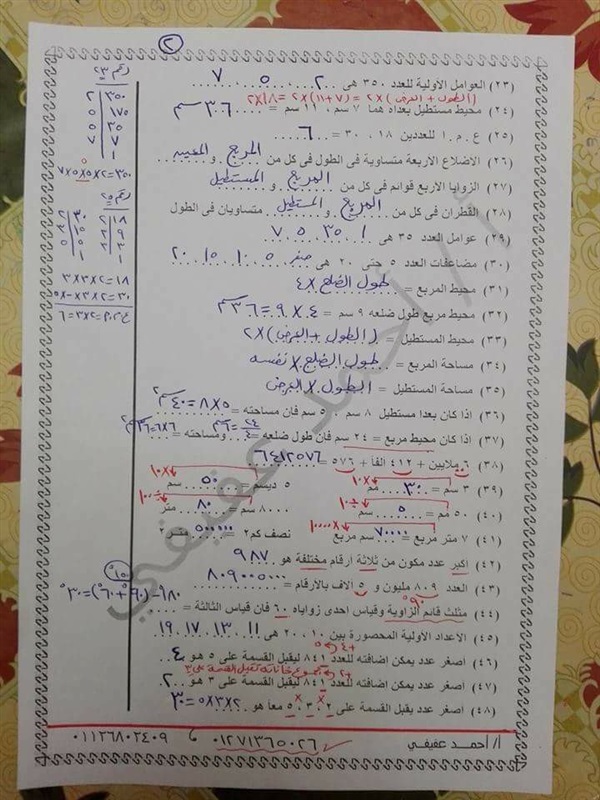 ٢
(٢٣) العوامل الأولية للعدد ٣٥٠ هى ٢ ، ٥ ، ٧
(الطول + العرض) × ٢ = (٧+١١) × ٢ = ١٨×٢
(٢٤) محيط مستطيل بعداه هما ٧ سم ، ١١ سم = ٣٦ سم
(٢٥) ع . م . ا للعددين ١٨ ، ٣٠ = ٦
(٢٦) الاضلاع الاربعة متساوية فى الطول فى كل من المربع و المعين
(٢٧) الزوايا الاربع قوائم فى كل من المربع و المستطيل
(٢٨) القطران فى كل من المربع و المستطيل متساويان فى الطول
(٢٩) عوامل العدد ٣٥ هى ١ ، ٣٥ ، ٥ ، ٧
(٣٠) مضاعفات العدد ٥ حتى ٢٠ هى صفر ، ٥ ، ١٠ ، ١٥ ، ٢٠
(٣١) محيط المربع = طول الضلع × ٤
(٣٢) محيط مربع طول ضلعه ٩ سم = ٤ × ٩ = ٣٦ سم
(٣٣) محيط المستطيل = (الطول + العرض) × ٢
(٣٤) مساحة المربع = طول الضلع × نفسه
(٣٥) مساحة المستطيل = الطول × العرض
(٣٦) اذا كان بعدا مستطيل ٨ سم ، ٥ سم فان مساحته = ٥ × ٨ = ٤٠ سم٢
(٣٧) اذا كان محيط مربع = ٢٤ سم فان طول ضلعه ٢٤/٤ = ٦ سم ومساحته = ٦×٦ = ٣٦ سم٢
(٣٨) ٦ ملايين + ٤١٢ الفا + ٥٧٦ = ٦٤١٢٥٧٦
×١٠ ×١٠
(٣٩) ٣ سم = ٣٠ مم ٥ ديسم = ٥٠ سم
÷١٠ ÷١٠٠
(٤٠) ٥٠ مم = ٥ سم ٨٠٠٠ سم = ٨٠ متر
×١٠٠٠٠
(٤١) ٧ متر مربع = ٧٠٠٠٠ سم مربع نصف كم٢ = ٥٠٠٠٠٠ متر٢
(٤٢) أكبر عدد مكون من ثلاثة أرقام مختلفة هو ٩٨٧
(٤٣) العدد ٨٠٩ مليون و ٥ الاف بالأرقام = ٨٠٩٠٠٥٠٠٠
٩٠°
(٤٤) مثلث قائم الزاوية وقياس احدى زواياه ٦٠ فان قياس الثالثة =
١٥٠°
١٨٠-(٩٠°+٦٠°)=٣٠°
(٤٥) الاعداد الأولية المحصورة بين ١٠ ، ٢٠ هى ١١ ، ١٣ ، ١٧ ، ١٩
(٤٦) اصغر عدد يمكن إضافته للعدد ٨٤١ ليقبل القسمة على ٥ هو ٤
مجموع خاناته تقبل القسمة على ٣
(٤٧) اصغر عدد يمكن إضافته للعدد ٨٤١ ليقبل القسمة على ٣ هو ٢
(٤٨) اصغر عدد يقبل القسمة على ٢ ، ٣ ، ٥ معا هو ٢×٣×٥ = ٣٠
أ/ احمد عفيفي ٠١٢٧١٣٦٥٠٢٦ ، ٠١١٢٦٨٠٢٤٠٩
رقم ٢٣
٣٥٠ ٢
١٧٥ ٥
٣٥ ٥
٧ ٧
١
٣٥٠=٢×٥×٥×٧
رقم ٢٥
١٨ ٢ ٣٠ ٢
٩ ٣ ١٥ ٣
٣ ٣ ٥ ٥
١ ١
١٨=٢×٣×٣
٣٠=٢×٣×٥
ع.م.ا=٢×٣=٦
أ/ أحمد عفيفي